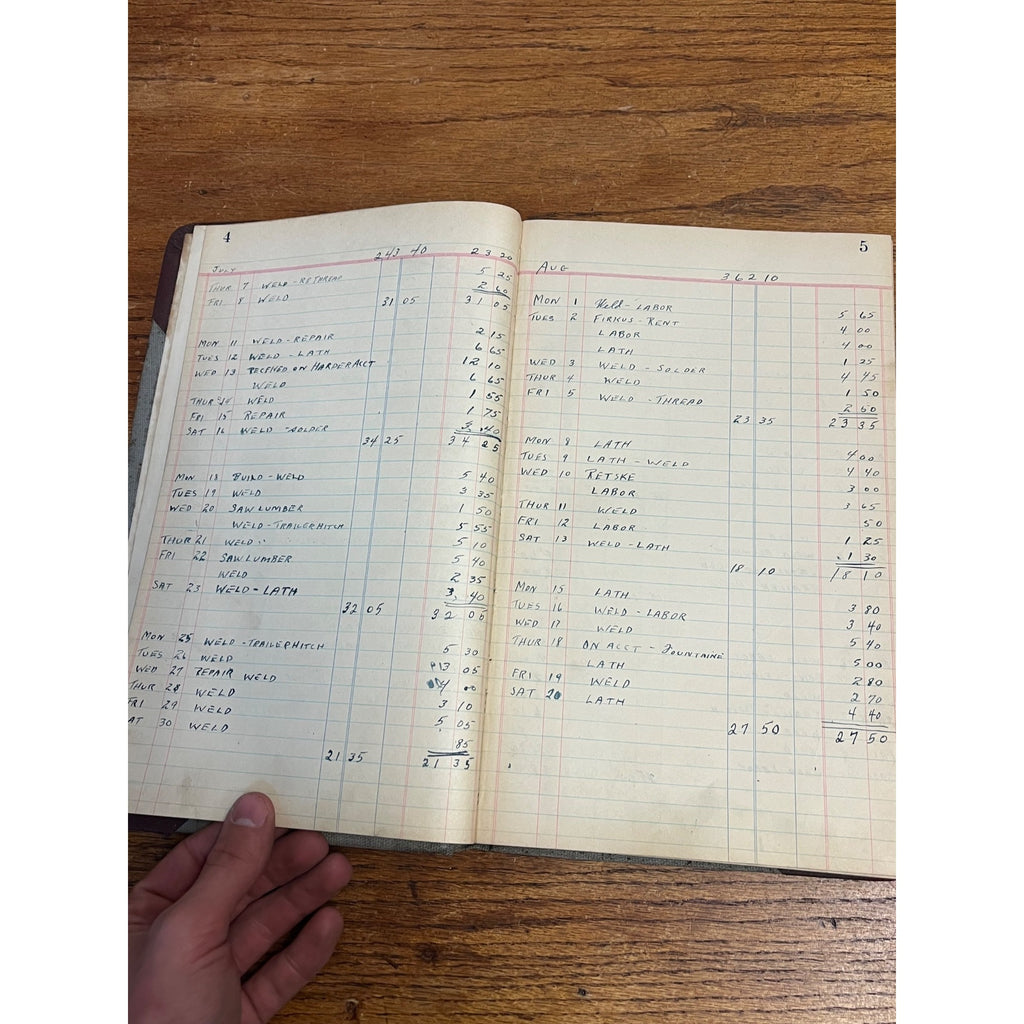 4
243 40 23 20
JULY
THUR 7 WELD - RETHREAD 5 25
FRI 8 WELD 2 60
31 05 31 05
MON 11 WELD - REPAIR 2 15
TUES 12 WELD - LATH 6 65
WED 13 RECEVED ON HARDER ACCT 12 10
WELD 6 65
THUR 14 WELD 1 55
FRI 15 REPAIR 1 75
SAT 16 WELD - SOLDER 3 40
34 25 34 25
MON 18 BUILD - WELD 5 40
TUES 19 WELD 3 35
WED 20 SAW LUMBER 1 50
WELD - TRAILER HITCH 5 55
THUR 21 WELD 5 10
FRI 22 SAW LUMBER 5 40
WELD 2 35
SAT 23 WELD - LATH 3 40
32 05 32 05
MON 25 WELD - TRAILER HITCH 5 30
TUES 26 WELD 3 05
WED 27 REPAIR WELD 4 00
THUR 28 WELD 3 10
FRI 29 WELD 5 05
SAT 30 WELD 85
21 35 21 35
5
AUG 362 10
MON 1 Weld - LABOR 5 65
TUES 2 FIRKUS - RENT 4 00
LABOR 4 00
LATH 1 25
WED 3 WELD - SOLDER 4 45
THUR 4 WELD 1 50
FRI 5 WELD - THREAD 2 50
23 35 23 35
MON 8 LATH 4 00
TUES 9 LATH - WELD 4 40
WED 10 RETSKE 3 00
LABOR 3 65
THUR 11 WELD 50
FRI 12 LABOR 1 25
SAT 13 WELD - LATH 1 30
18 10 18 10
MON 15 LATH 3 80
TUES 16 WELD - LABOR 3 40
WED 17 WELD 5 40
THUR 18 ON ACCT - FOUNTAINE 5 00
LATH 2 80
FRI 19 WELD 2 70
SAT 20 LATH 4 40
27 50 27 50